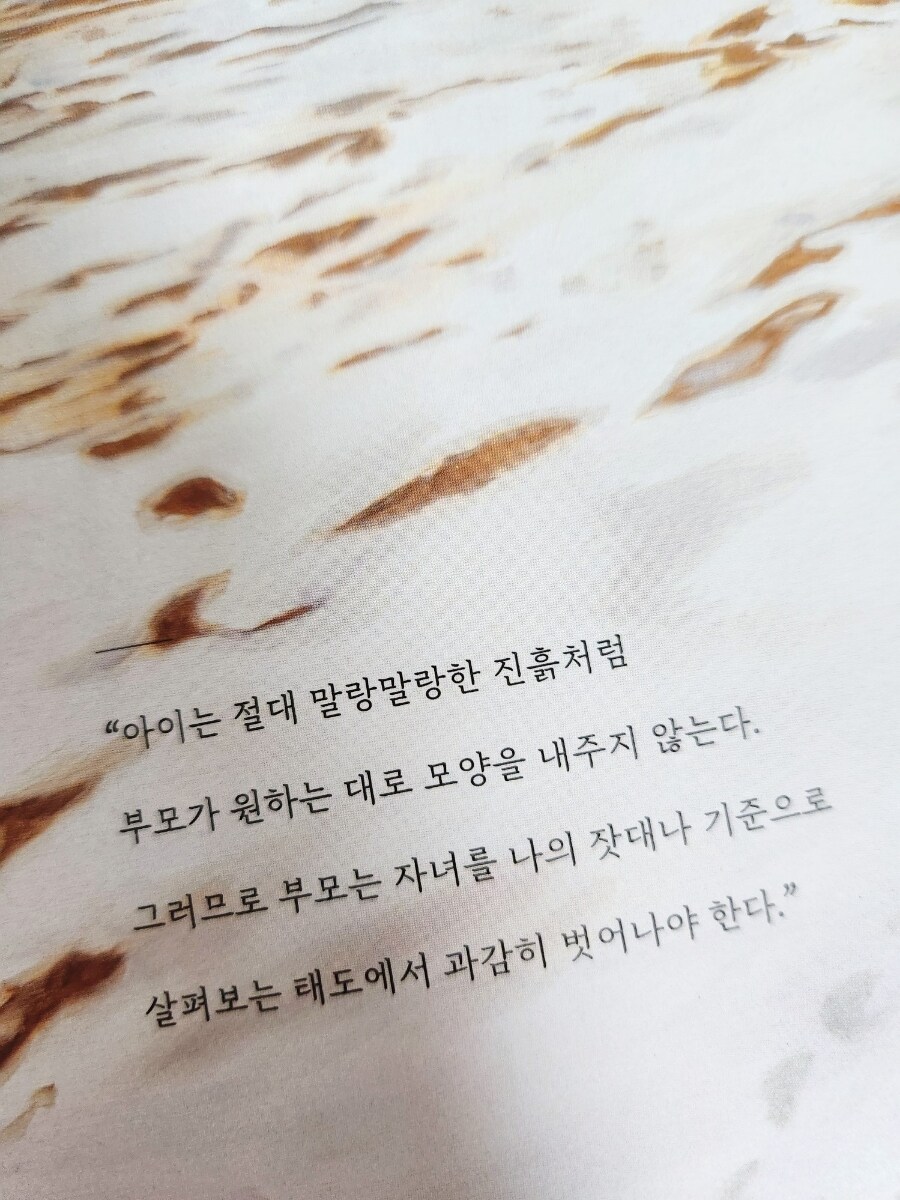 “아이는 절대 말랑말랑한 진흙처럼
부모가 원하는 대로 모양을 내주지 않는다.
그러므로 부모는 자녀를 나의 잣대나 기준으로
살펴보는 태도에서 과감히 벗어나야 한다.”